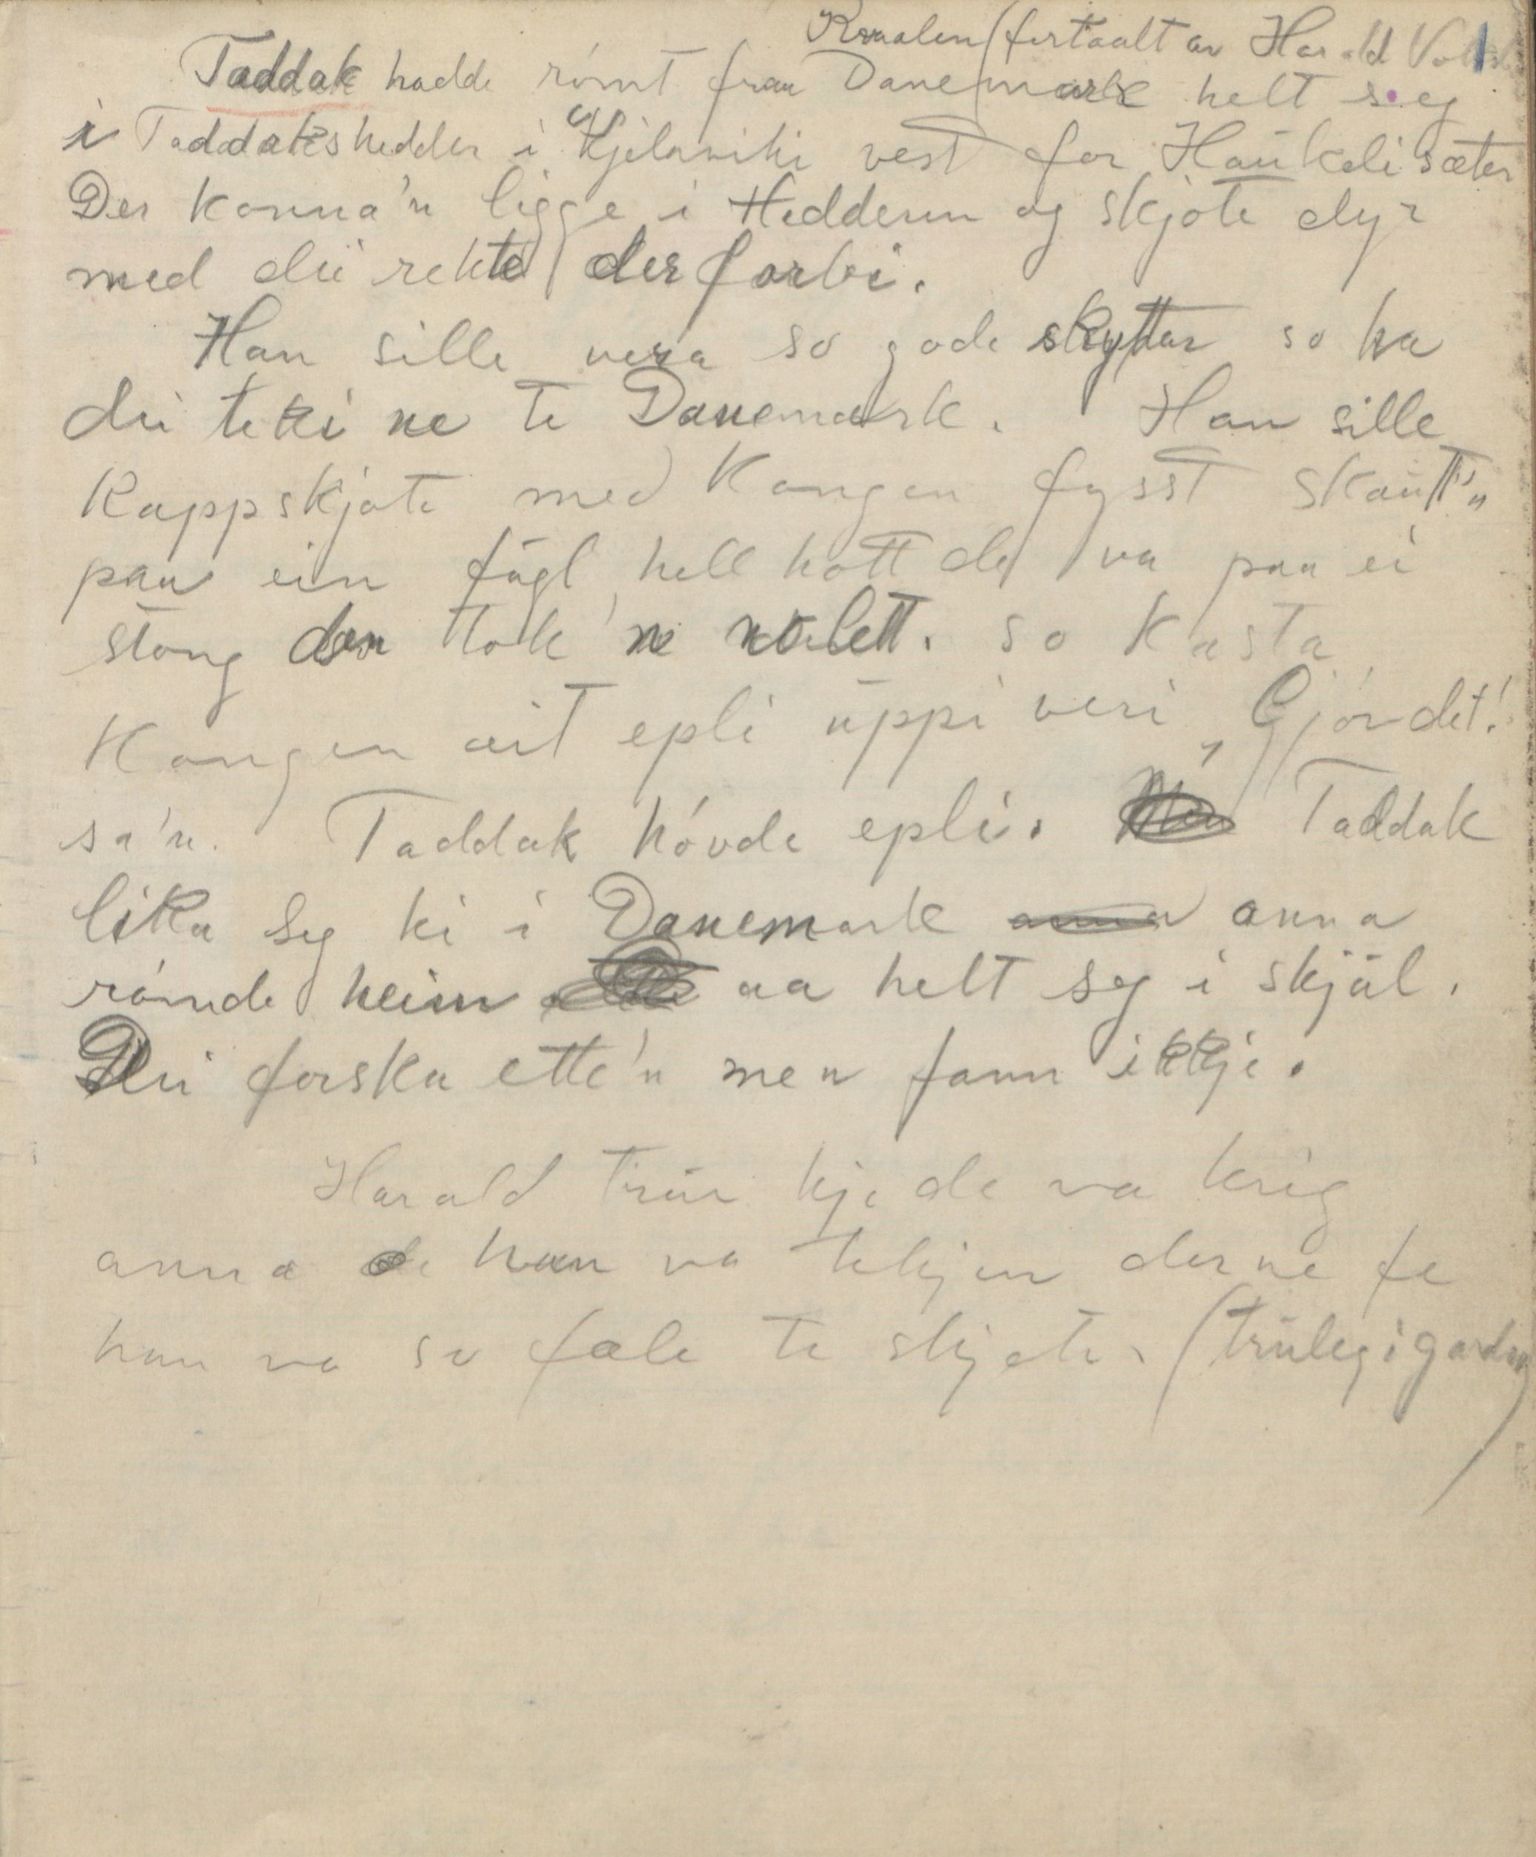 Kvaalen (fortaalt av Harald
Taddak hadde rómt fraa Danemark helt seg
i Taddakshedder i Kjelaviki vest for Haukelisæter
Der konna'n ligge i Hedderen og skjote dyr
med dei rekte derforbi.
Han sille vera so gode skyttar so ha
dei teki ne te Danemark. Han sille
Kappskjote med Kongen fysst skaut'n
paa ein fugl hell hott de va paa ei
stong den tok 'n so lett. so Kasta
Kongen eit epli uppi veri „Gjór det!
sa'n. Taddak hóvde epli. Taddak
lika seg ki i Danemark anna
rómde heim aa helt seg i skjúl.
Dei forska ette'n men fann ikkje.
Harald trur kje de va krig
anna de han va tekjen der ne fe
han va so fæle te skjote. (truleg i garden)